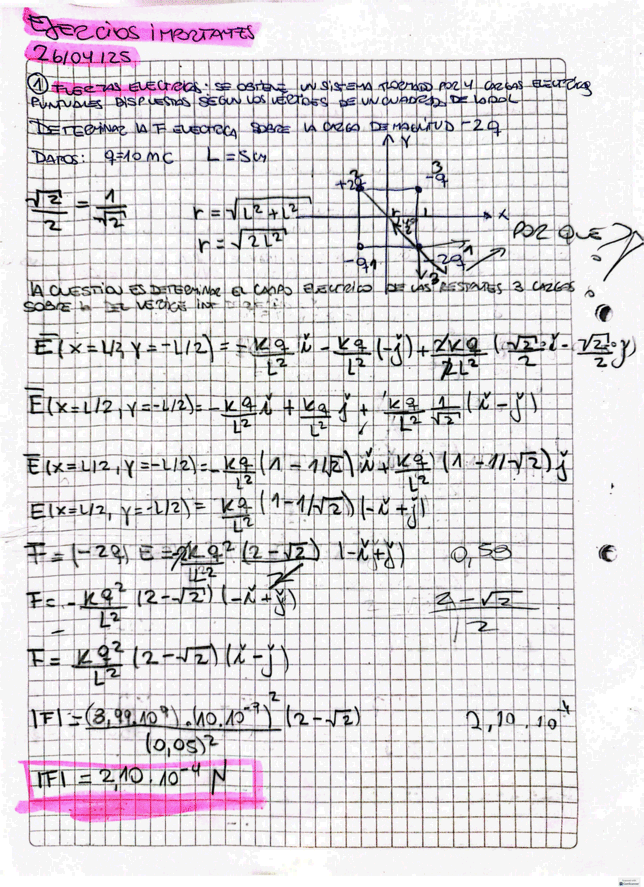 EJERCICIOS IMPORTANTES
26/04/25
① FUERZAS ELECTRICAS: SE OBTIENE UN SISTEMA FORMADO POR 4 CARGAS ELECTRICAS
PUNTUALES DISPUESTAS SEGUN LOS VERTICES DE UN CUADRADO DE LADO L
DETERMINAR LA F ELECTRICA SOBRE LA CARGA DE MAGNITUD -2q
DATOS: q=10 mC L = 5cm
Y
+2q 2
3 -q
x
r
L
-q 1
-2q
POR QUE
√2/2 = 1/√2
r = √(L² + L²)
r = √(2L²)
LA CUESTION ES DETERMINAR EL CAMPO ELECTRICO DE LAS RESTANTES 3 CARGAS
SOBRE DEL VERTICE
E(x=L/2, y=-L/2) = -Kq/L² i - Kq/L² (-j) + 2Kq/2L² (√2/2 i - √2/2 j)
E(x=L/2, y=-L/2) = -Kq/L² i + Kq/L² j + Kq/L² 1/√2 (i - j)
E(x=L/2, y=-L/2) = -Kq/L² (1 - 1/√2) i + Kq/L² (1 - 1/√2) j
E(x=L/2, y=-L/2) = Kq/L² (1 - 1/√2) (-i + j)
F = (-2q) E = -2Kq²/L² (2-√2)/2 (-i + j) 0,58
F = -Kq²/L² (2-√2) (-i + j) (2-√2)/2
F = Kq²/L² (2-√2) (i - j)
|F| = (8,99.10⁹).(10.10⁻⁹)²/(0,05)² (2-√2) 2,10.10⁻⁴
|F| = 2,10.10⁻⁴ N